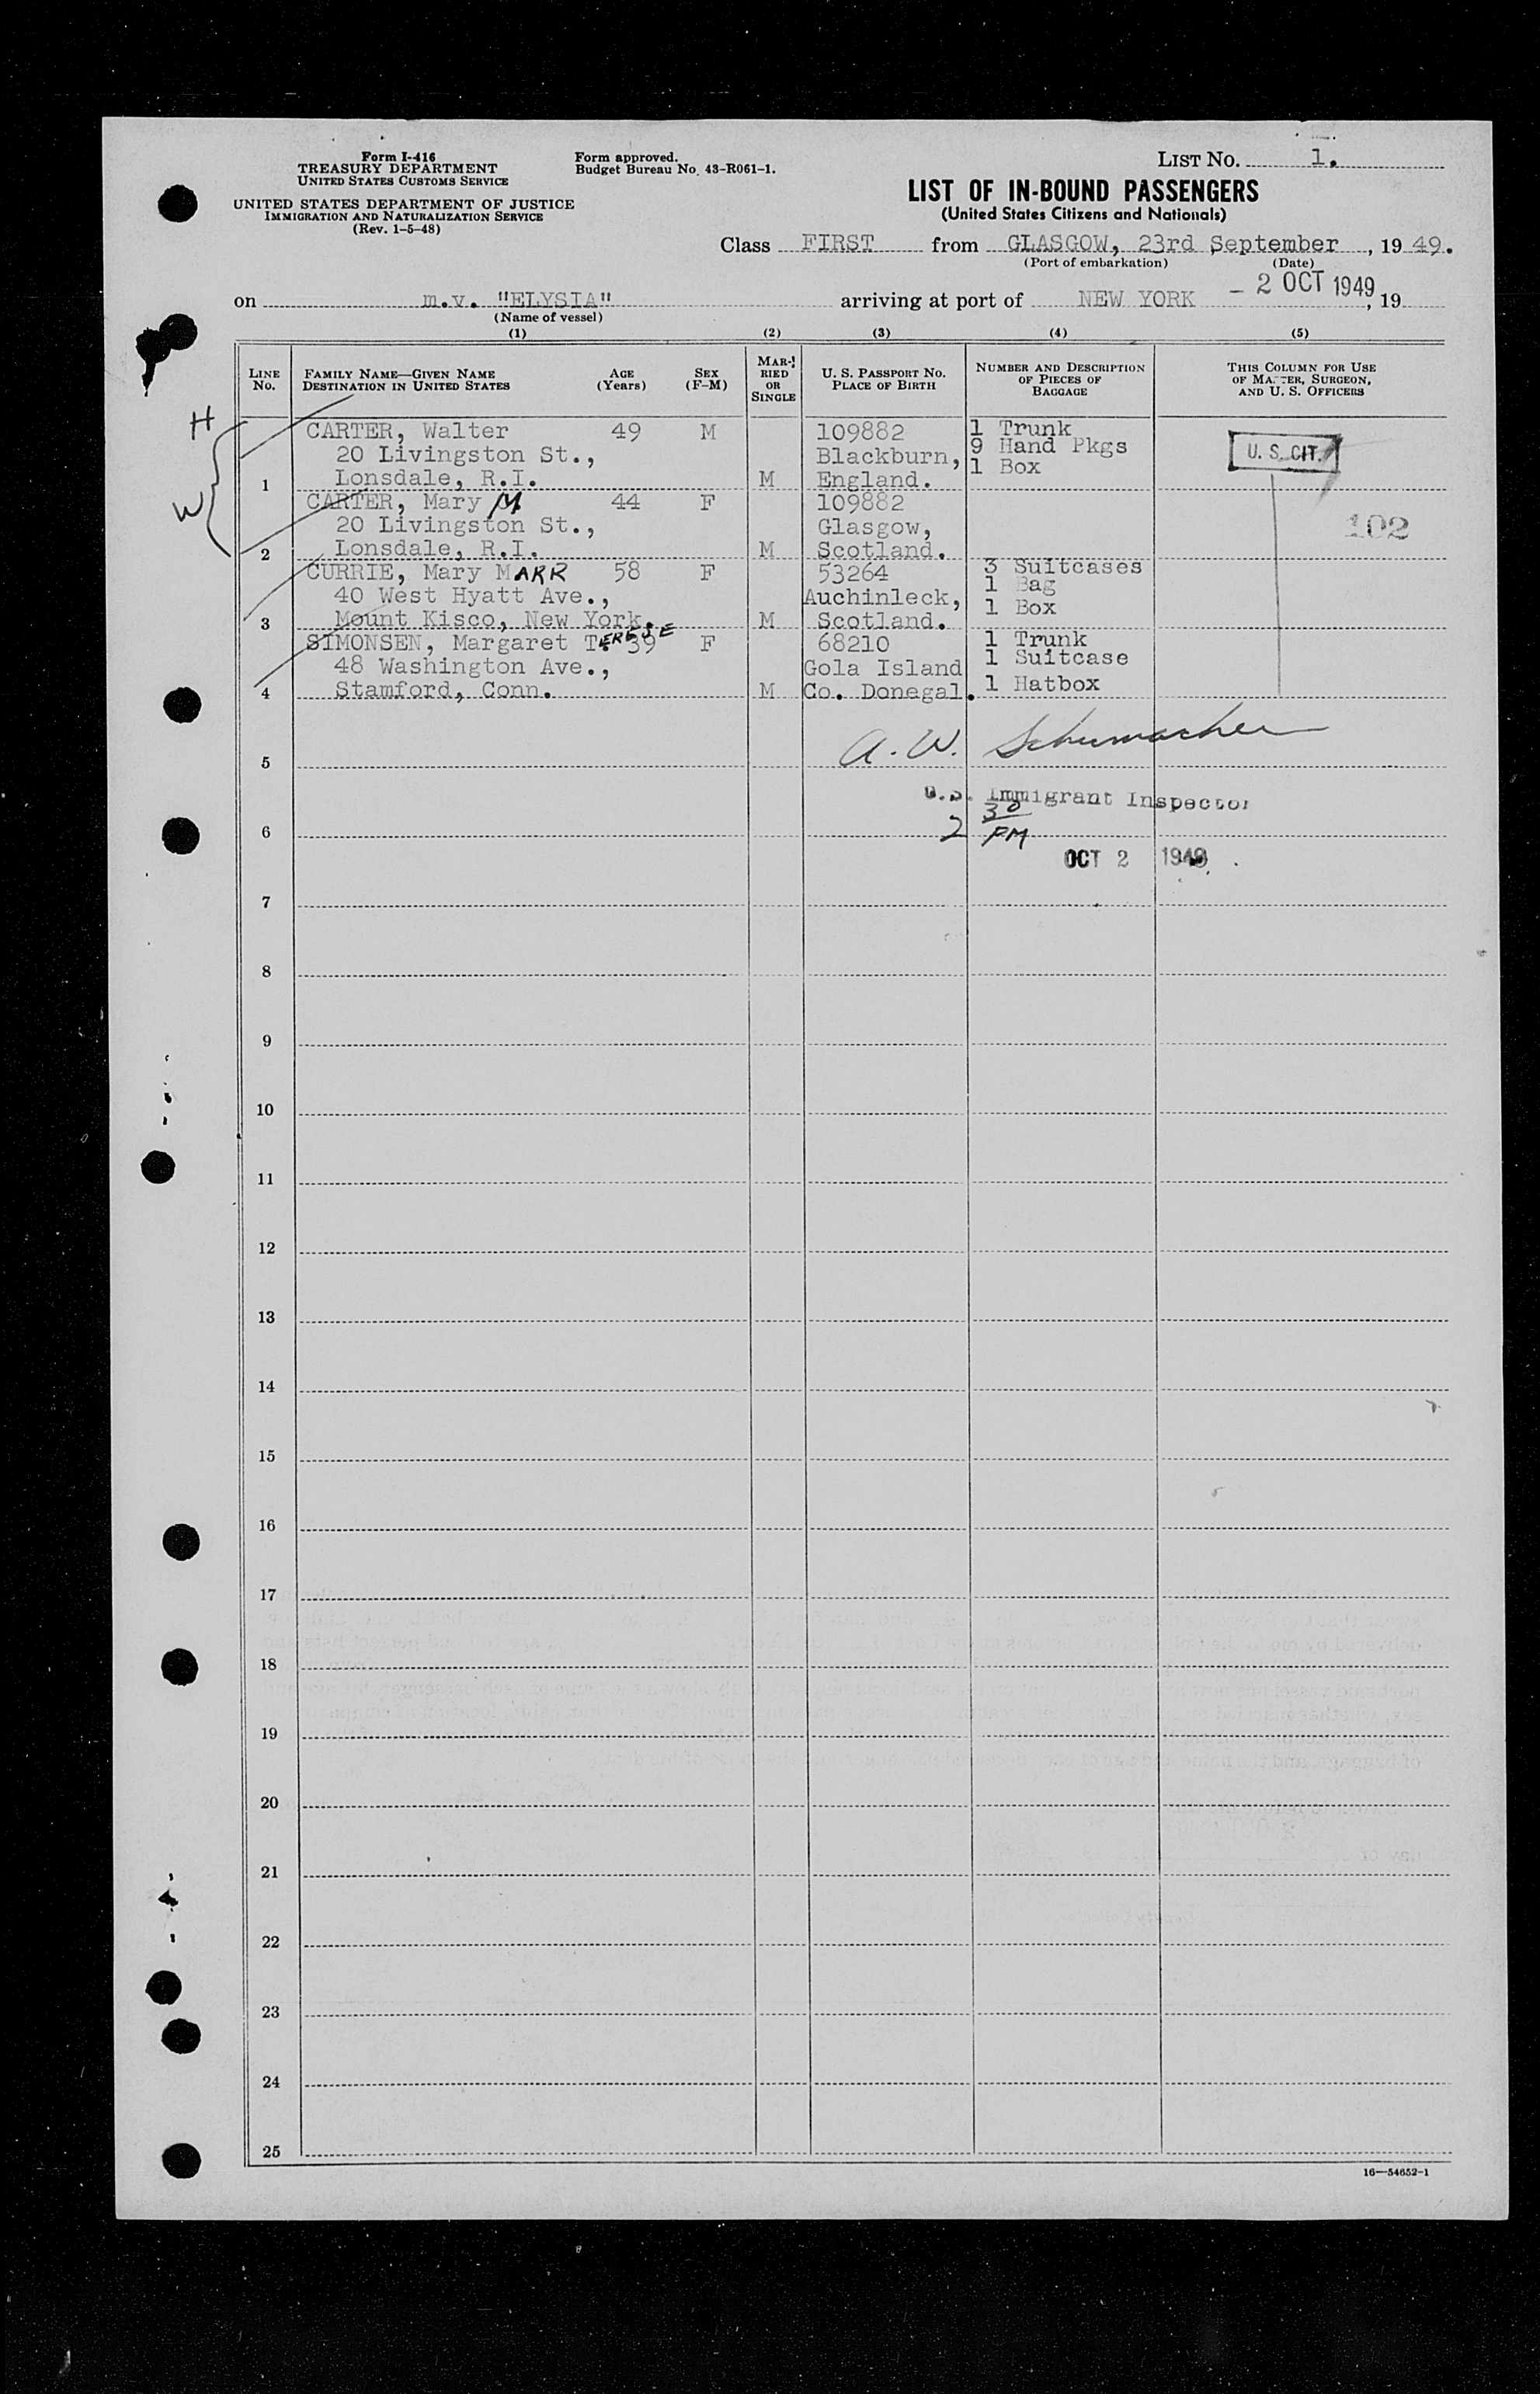 Form I-416
TREASURY DEPARTMENT
UNITED STATES CUSTOMS SERVICE
UNITED STATES DEPARTMENT OF JUSTICE
IMMIGRATION AND NATURALIZATION SERVICE
(Rev. 1-5-48)
Form approved.
Budget Bureau No. 43-R061-1.
LIST NO. 1.
LIST OF IN-BOUND PASSENGERS
(United States Citizens and Nationals)
Class FIRST from GLASGOW, 23rd September, 19 49.
(Port of embarkation) (Date)
on m.v. "ELYSIA" arriving at port of NEW YORK - 2 OCT 1949, 19
(Name of vessel)
(1) (2) (3) (4) (5)
LINE No. FAMILY NAME—GIVEN NAME DESTINATION IN UNITED STATES AGE (Years) SEX (F-M) MARRIED OR SINGLE U. S. PASSPORT NO. PLACE OF BIRTH NUMBER AND DESCRIPTION OF PIECES OF BAGGAGE THIS COLUMN FOR USE OF MASTER, SURGEON, AND U. S. OFFICERS
H
W
CARTER, Walter 49 M 109882 1 Trunk
20 Livingston St., Blackburn, 9 Hand Pkgs U. S. CIT.
1 Lonsdale, R.I. M England. 1 Box
CARTER, Mary M 44 F 109882
20 Livingston St., Glasgow, 102
2 Lonsdale, R.I. M Scotland.
CURRIE, Mary MARR 58 F 53264 3 Suitcases
40 West Hyatt Ave., Auchinleck, 1 Bag
3 Mount Kisco, New York. M Scotland. 1 Box
SIMONSEN, Margaret TERESE 39 F 68210 1 Trunk
48 Washington Ave., Gola Island 1 Suitcase
4 Stamford, Conn. M Co. Donegal. 1 Hatbox
5 A. W. Schumacher
U.S. Immigrant Inspector
6 2 30 PM
OCT 2 1949
7
8
9
10
11
12
13
14
15
16
17
18
19
20
21
22
23
24
25
16—54652-1